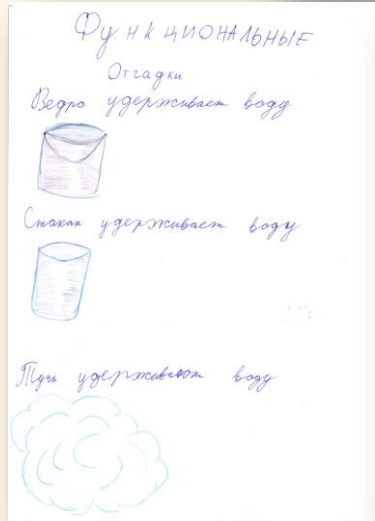 ФУНКЦИОНАЛЬНЫЕ
Отгадки
Ведро удерживает воду
Стакан удерживает воду
Тучи удерживают воду